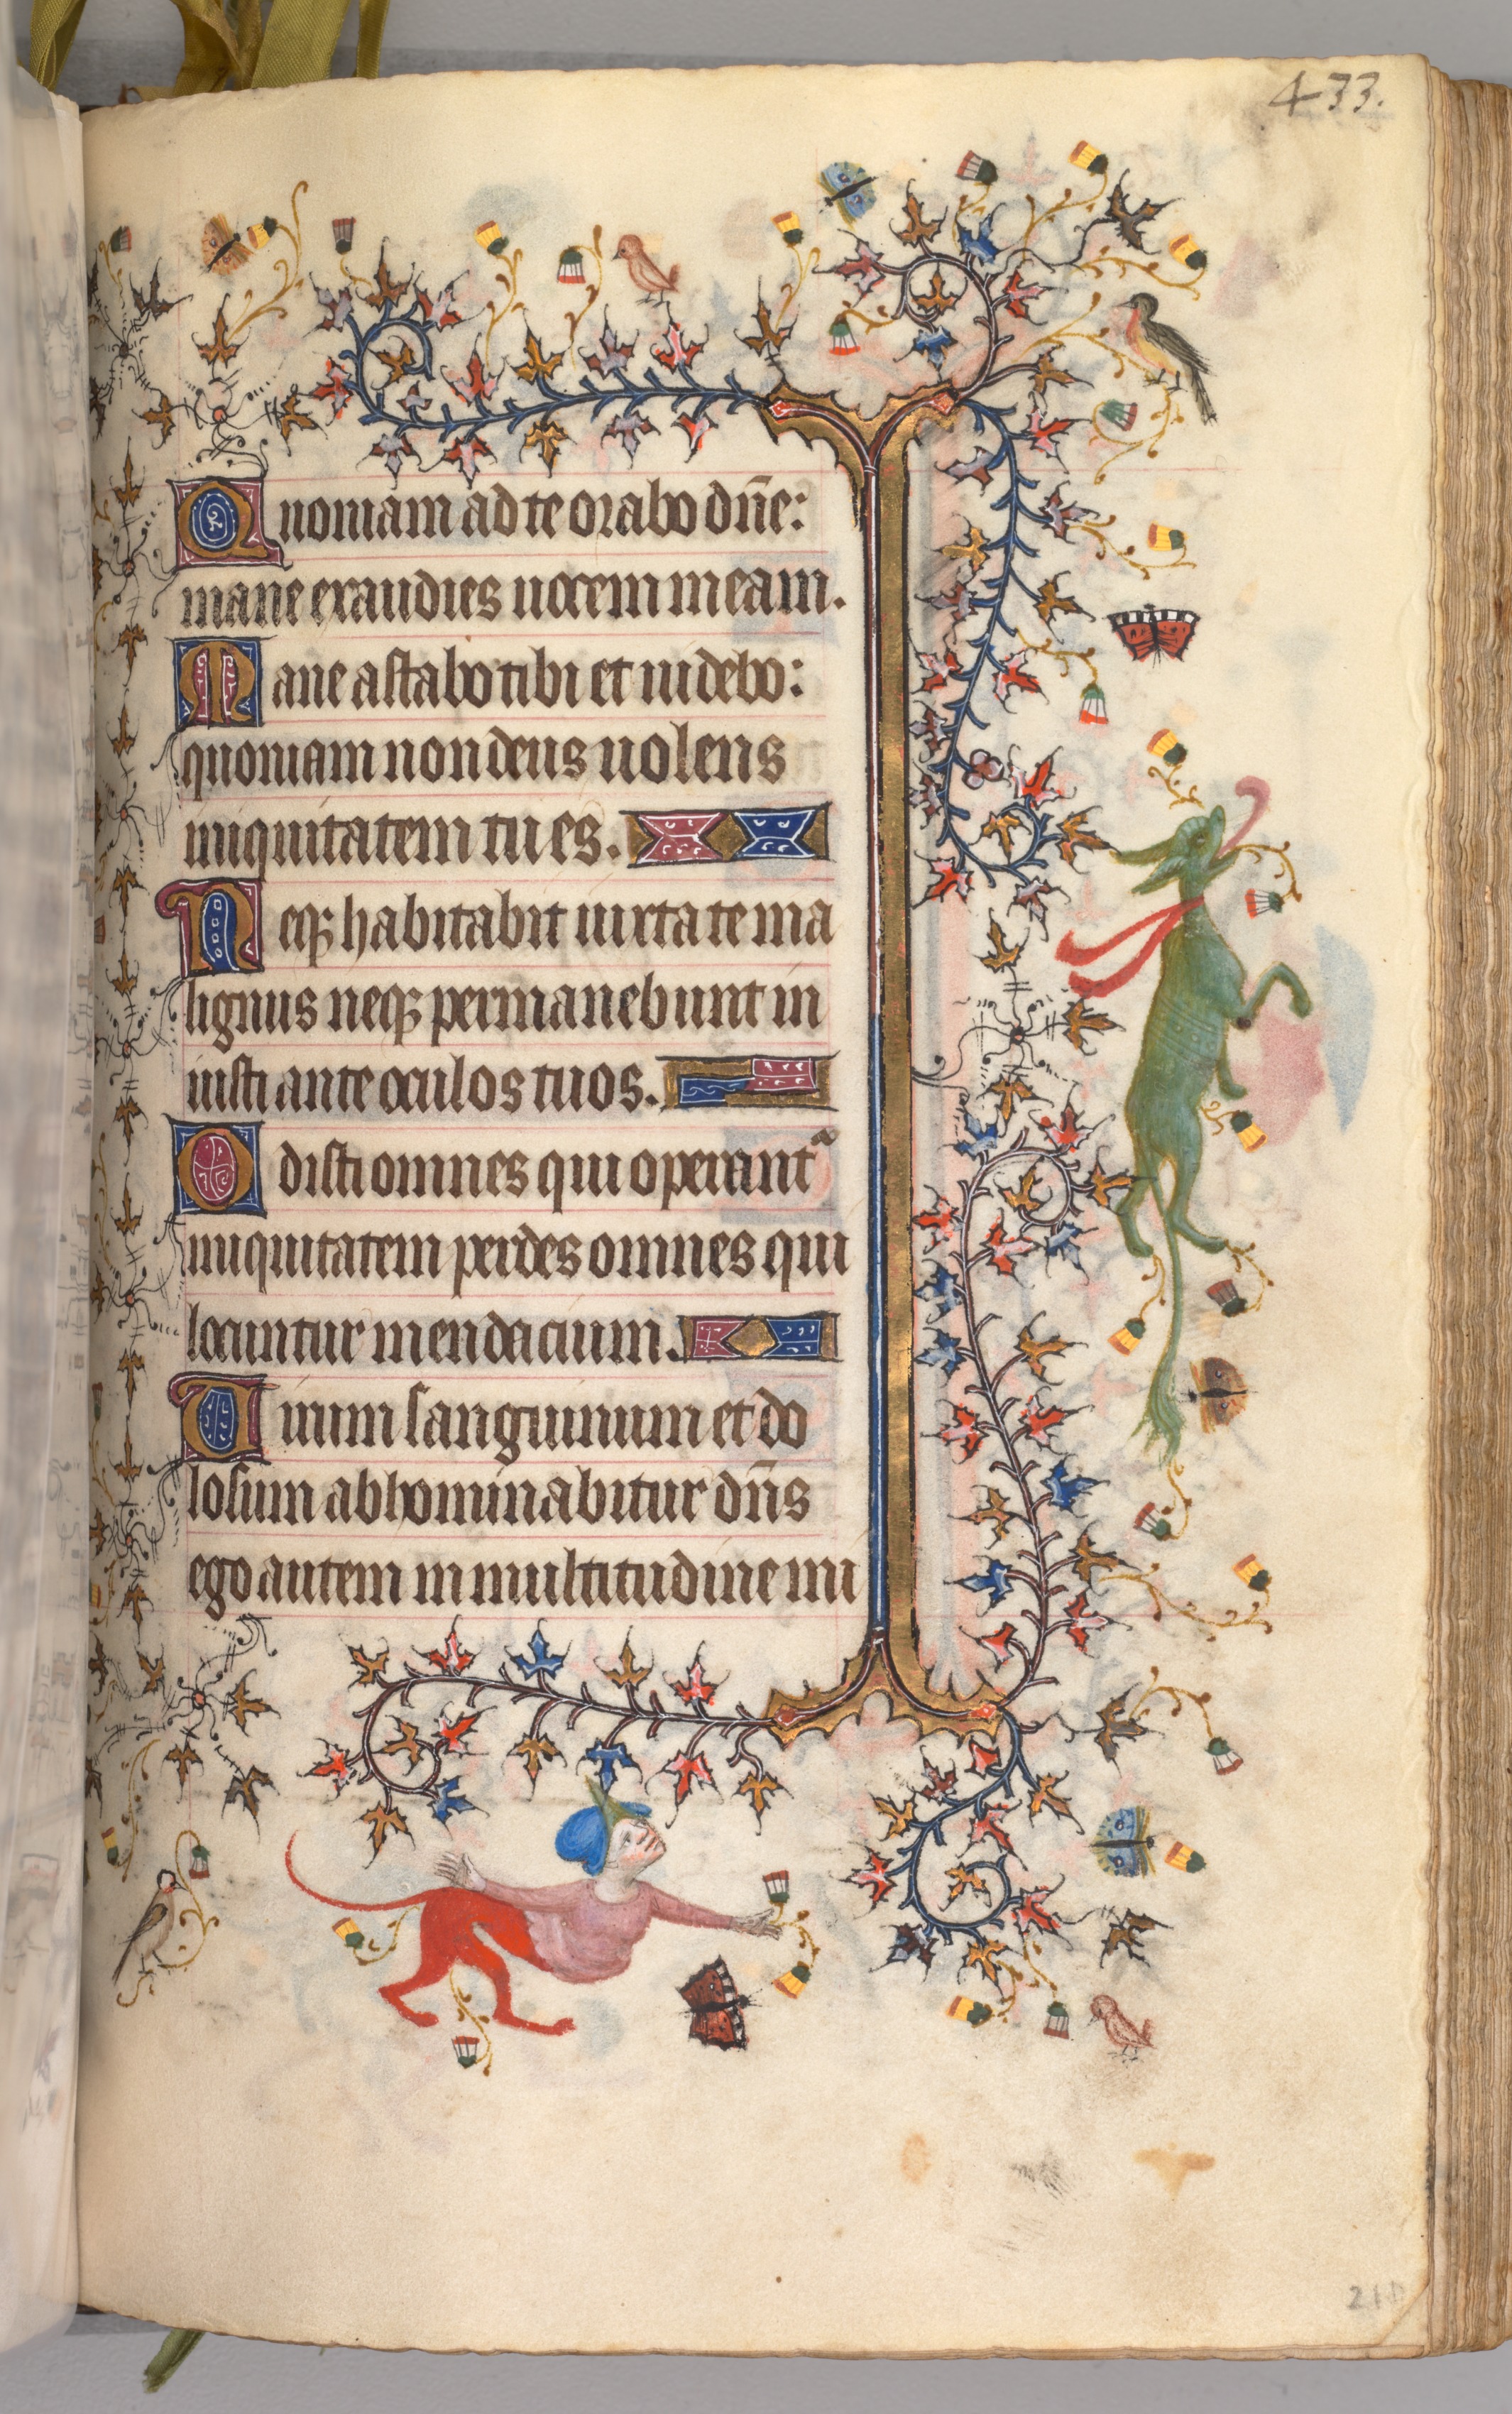 433.
Quoniam ad te orabo dn̄e:
mane exaudies uocem meam.
Mane astabo tibi et uidebo:
quoniam non deus uolens
iniquitatem tu es.
Neq; habitabit iuxta te ma
lignus neq; permanebunt in
iusti ante oculos tuos.
Odisti omnes qui operant᷑
iniquitatem perdes omnes qui
locuntur mendacium.
Uirum sanguinum et do
losum abhominabitur dn̄s
ego autem in multitudine mi